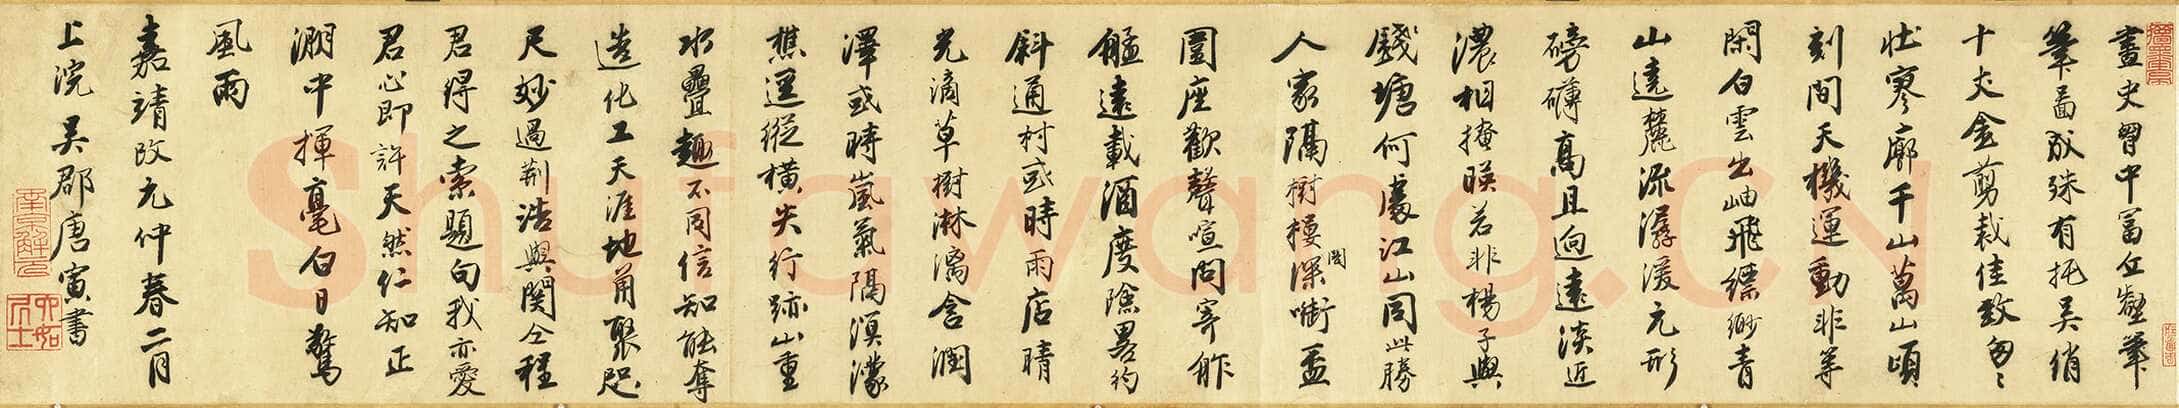 畫史胷中富丘壑筆
筆嵓成殊有托吴綃
十丈金剪裁佳致匆〻
壯寥廓千山萬山頃
刻間天機運動非等
閑白雲出岫飛縹緲青
山遠麓流潺湲元形
磅礴髙且逈遠淡近
濃相掩暎若非楊子與
錢塘何處江山同此勝
人家隔樹樓閣深啣盃
圍座歡聲喧問寄舴
艋遠載酒度險畧彴
斜通村或時雨店晴
光滴草樹淋漓含潤
澤或時嵐氣隔溟濛
樵逕縱横失行跡山重
水疊趣不同信知能奪
造化工天涯地角聚咫
尺妙過荆浩與関仝程
君得之索題句我亦愛
君心即許天然仁知正
淵中揮毫白日驚
風雨
嘉靖改元仲春二月
上浣吴郡唐寅書
南京解元
六如居士
Shufawang.CN